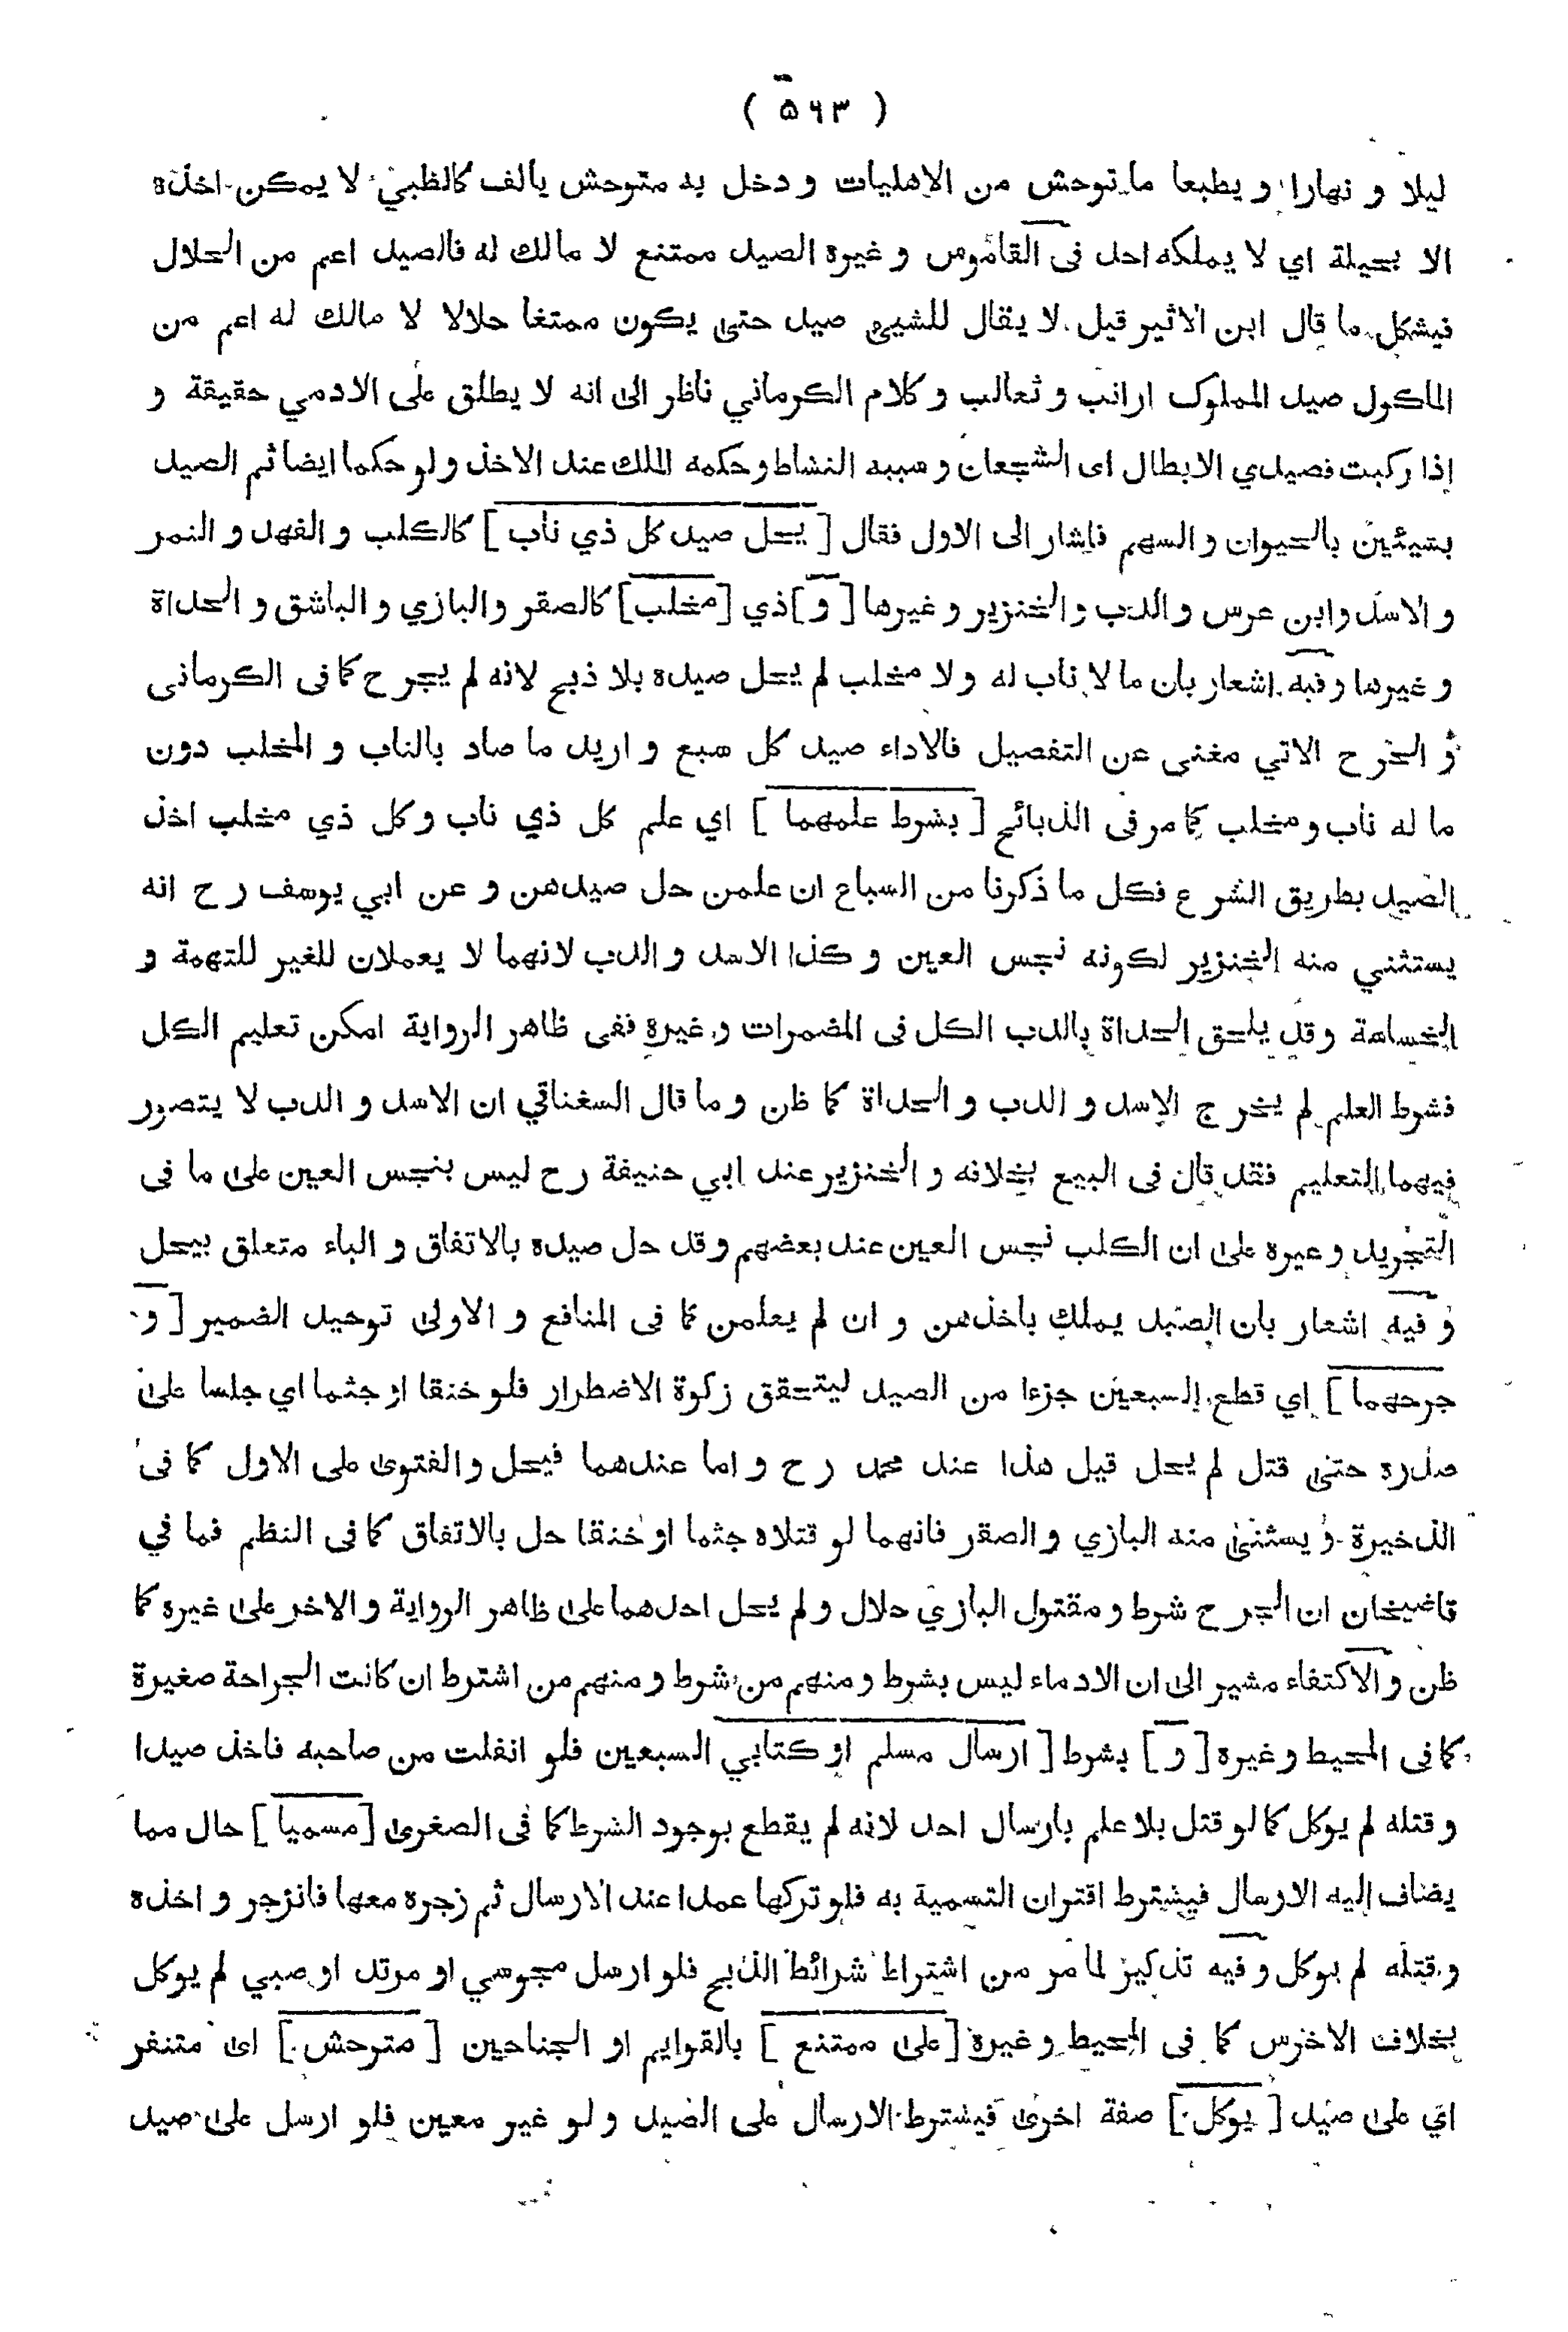 ( ۵۶۳ )
ليلا و نهارا و يطبعا ما توحش من الاهليات و دخل به متوحش يالف كالظبي لا يمكن اخذه
الا بحيلة اي لا يملكه احد فى القاموس و غيره الصيد ممتنع لا مالك له فالصيد اعم من الحلال
فيشكل ما قال ابن الاثير قيل لا يقال للشيئ صيد حتى يكون ممتنعا حلالا لا مالك له اعم من
الماكول صيد الملوك ارانب و ثعالب و كلام الكرماني ناظر الى انه لا يطلق على الادمي حقيقة و
إذا ركبت فصيدي الابطال اى الشجعان و سببه النشاط و حكمه الملك عند الاخذ و لو حكما ايضا ثم الصيد
بشيئين بالحيوان و السهم فاشار الى الاول فقال [ يحل صيد كل ذي ناب ] كالكلب و الفهد و النمر
و الاسد و ابن عرس و الدب و الخنزير و غيرها [ و ] ذي [ مخلب ] كالصقر و البازي و الباشق و الحداة
و غيرها و فيه اشعار بان ما لا ناب له و لا مخلب لم يحل صيده بلا ذبح لانه لم يجرح كما فى الكرمانى
و الجرح الاتي مغنى عن التفصيل فالاداء صيد كل سبع و اريد ما صاد بالناب و المخلب دون
ما له ناب و مخلب كما مر فى الذبائح [ بشرط علمهما ] اي علم كل ذي ناب و كل ذي مخلب اخذ
الصيد بطريق الشرع فكل ما ذكرنا من السباع ان علمن حل صيدهن و عن ابي يوسف رح انه
يستثني منه الخنزير لكونه نجس العين و كذا الاسد و الدب لانهما لا يعملان للغير للتهمة و
الخساسة و قد يلحق الحداة بالدب الكل فى المضمرات و غيره ففى ظاهر الرواية امكن تعليم الكل
فشرط العلم لم يخرج الاسد و الدب و الحداة كما ظن و ما قال السغناقي ان الاسد و الدب لا يتصور
فيهما التعليم فقد قال فى البيع بخلافه و الخنزير عند ابي حنيفة رح ليس بنجس العين على ما فى
التجريد و غيره على ان الكلب نجس العين عند بعضهم و قد حل صيده بالاتفاق و الباء متعلق بيحل
و فيه اشعار بان الصيد يملك باخذهن و ان لم يعلمن كما فى المنافع و الاولى توحيد الضمير [ و
جرحهما ] اي قطع السبعين جزءا من الصيد ليتحقق زكوة الاضطرار فلو خنقا او جثما اي جلسا على
صدره حتى قتل لم يحل قيل هذا عند محمد رح و اما عندهما فيحل و الفتوى على الاول كما فى
الذخيرة و يستثنى منه البازي و الصقر فانهما لو قتلاه جثما او خنقا حل بالاتفاق كما فى النظم فما في
قاضيخان ان الجرح شرط و مقتول البازي حلال و لم يحل احدهما على ظاهر الرواية و الاخر على غيره كما
ظن و الاكتفاء مشير الى ان الادماء ليس بشرط و منهم من شرط و منهم من اشترط ان كانت الجراحة صغيرة
كما فى المحيط و غيره [ و ] بشرط [ ارسال مسلم او كتابي السبعين فلو انفلت من صاحبه فاخذ صيدا
و قتله لم يوكل كما لو قتل بلا علم بارسال احد لانه لم يقطع بوجود الشرط كما فى الصغرى [ مسميا ] حال مما
يضاف اليه الارسال فيشترط اقتران التسمية به فلو تركها عمدا عند الارسال ثم زجره معها فانزجر و اخذه
و قتله لم يوكل و فيه تذكير لما مر من اشتراط شرائط الذبح فلو ارسل مجوسي او مرتد او صبي لم يوكل
بخلاف الاخرس كما فى المحيط و غيره [ على ممتنع ] بالقوايم او الجناحين [ متوحش ] اى متنفر
اي على صيد [ يوكل ] صفة اخرى فيشترط الارسال على الصيد و لو غير معين فلو ارسل على صيد